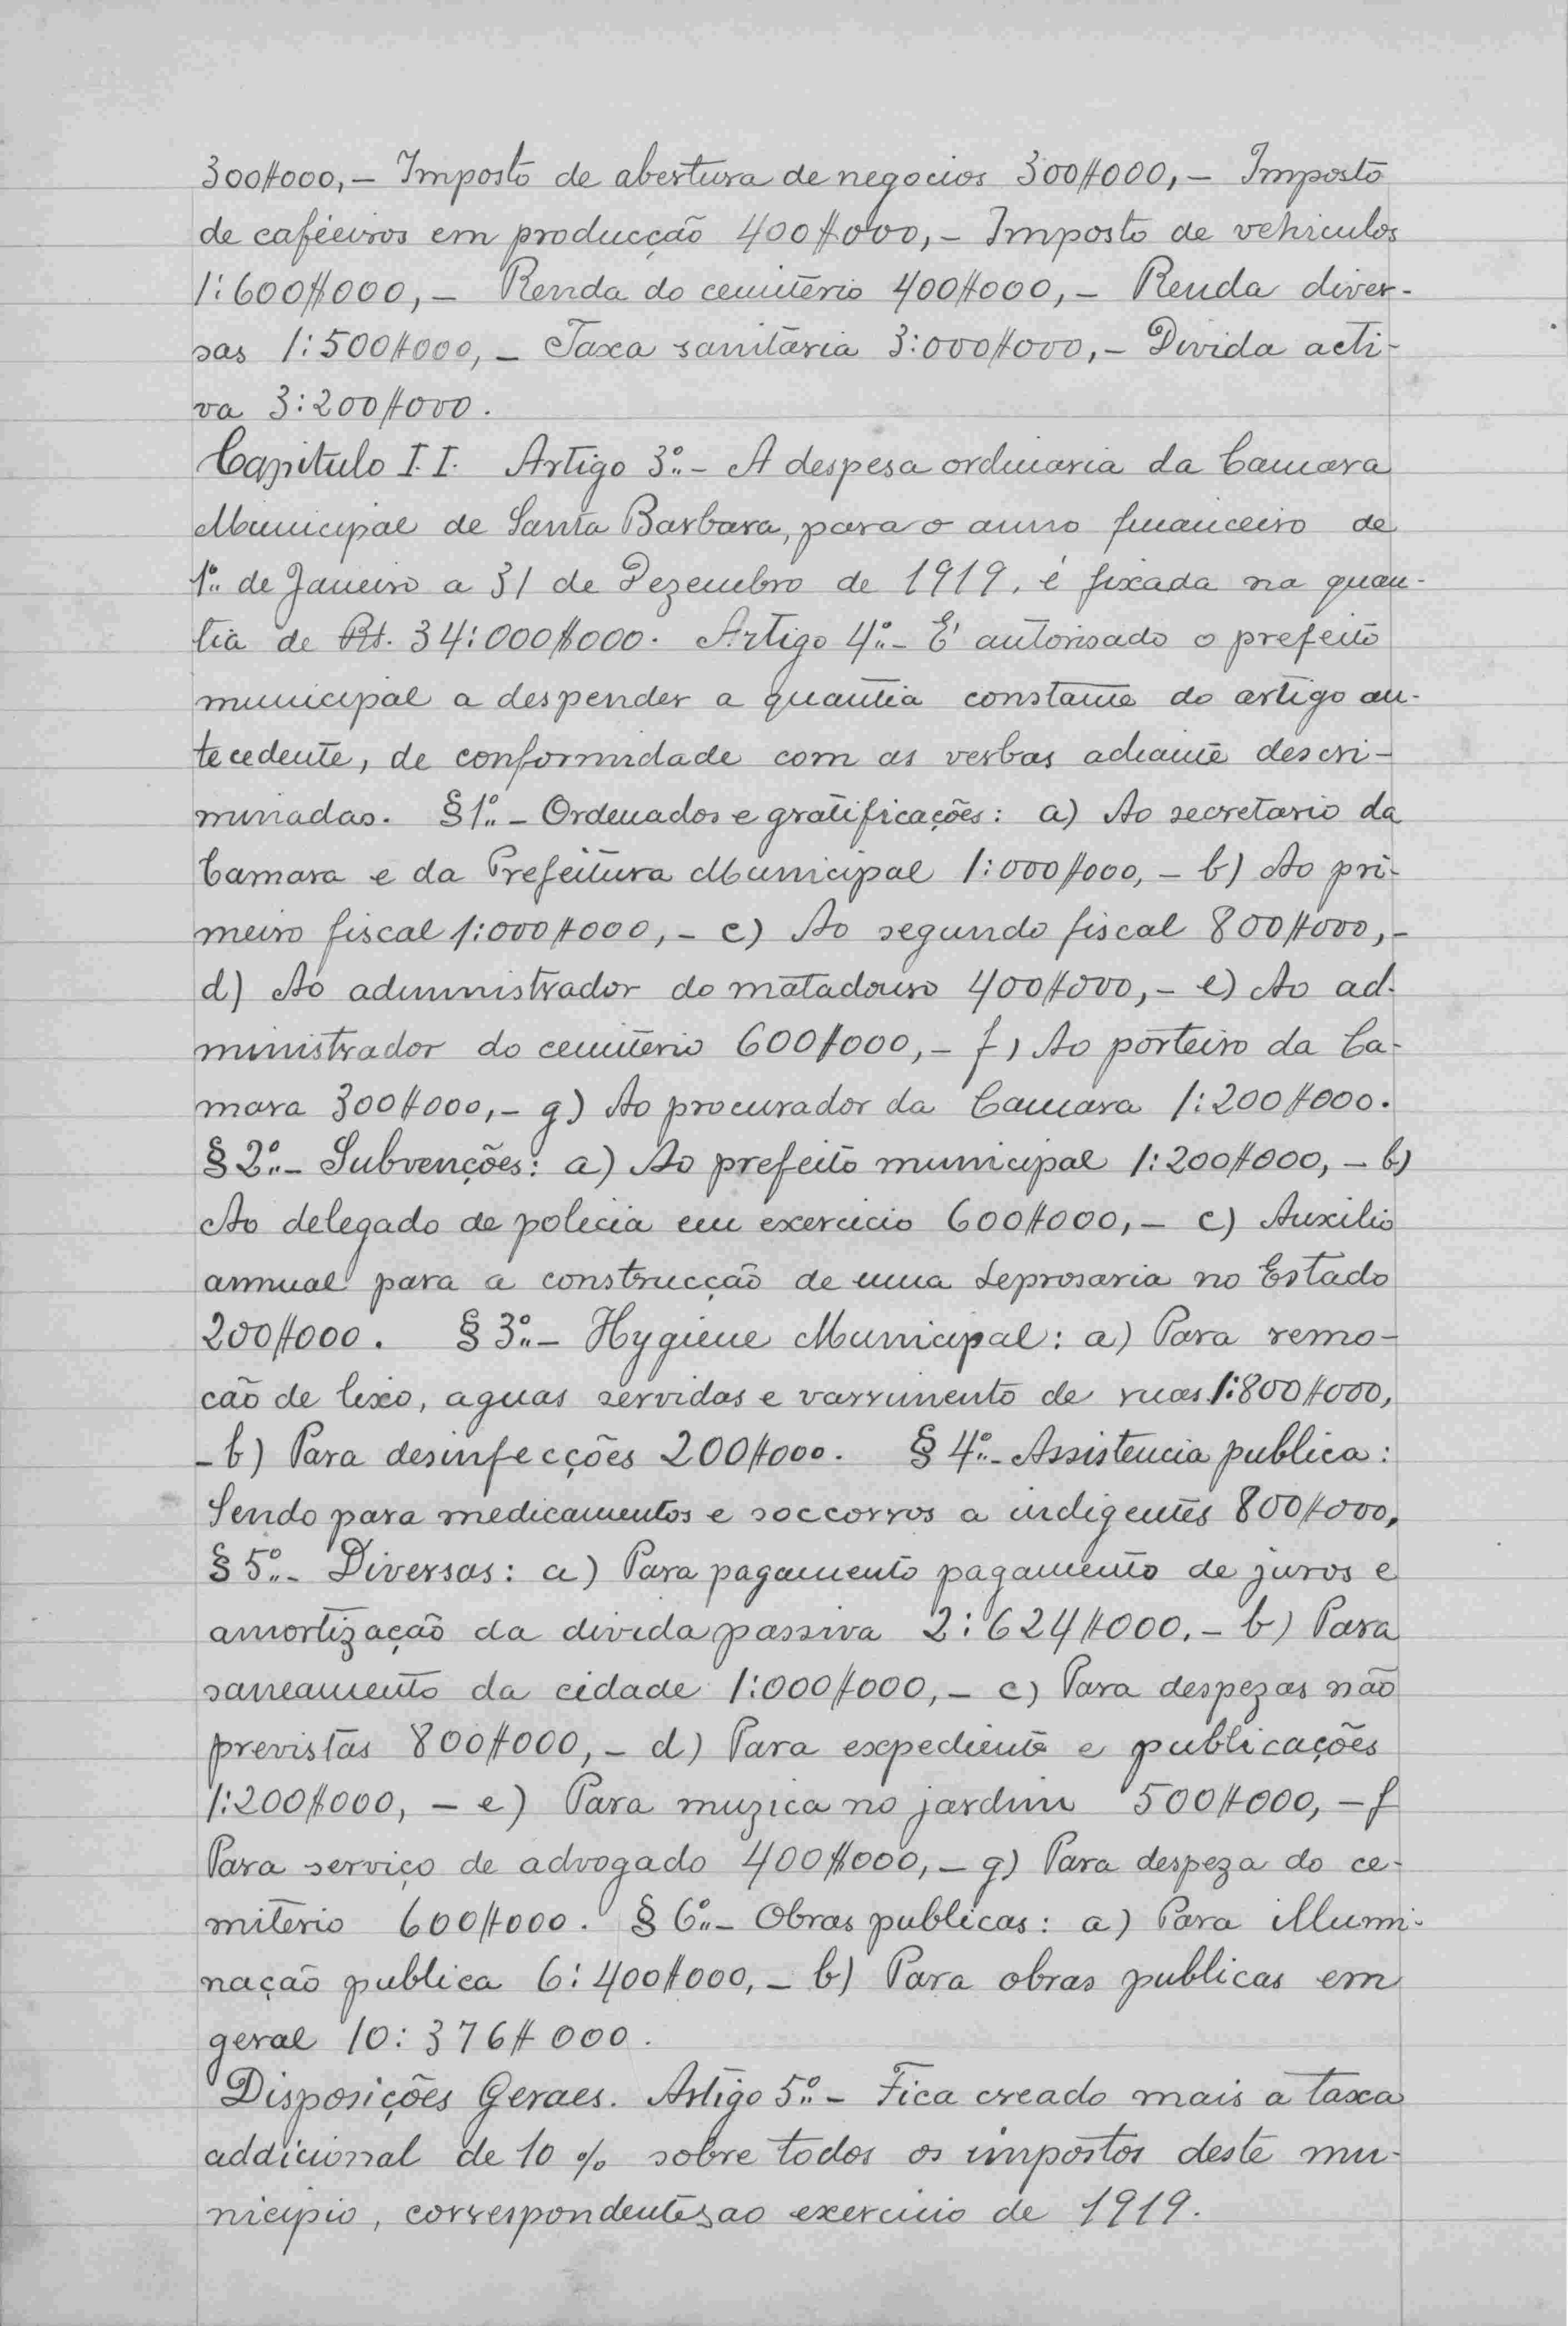 300$000,- Imposto de abertura de negocios 300$000,- Imposto
de caféeiros em producção 400$000,- Imposto de vehiculos
1:600$000,- Renda do cemitério 400$000,- Renda diver-
sas 1:500$000,- Taxa sanitaria 3:000$000,- Divida acti-
va 3:200$000.
Capitulo I.I. Artigo 3º.- A despesa ordinaria da Camara
Municipal de Santa Barbara, para o anno financeiro de
1º. de Janeiro a 31 de Dezembro de 1919, é fixada na quan-
tia de Rs. 34:000$000. Artigo 4º.- É autorisado o prefeito
municipal a despender a quantia constante do artigo an-
tecedente, de conformidade com as verbas adiante descri-
minadas. §1º.- Ordenados e gratificações: a) Ao secretario da
Camara e da Prefeitura Municipal 1:000$000,- b) Ao pri-
meiro fiscal 1:000$000,- c) Ao segundo fiscal 800$000,-
d) Ao administrador do matadouro 400$000,- e) Ao ad-
ministrador do cemitério 600$000,- f) Ao porteiro da Ca-
mara 300$000,- g) Ao procurador da Camara 1:200$000.
§2º.- Subvenções: a) Ao prefeito municipal 1:200$000,- b)
Ao delegado de policia em exercicio 600$000,- c) Auxilio
annual para a construcção de uma Leprosaria no Estado
200$000. §3º.- Hygiene Municipal: a) Para remo-
cão de lixo, aguas servidas e varrimento de ruas 1:800$000,
-b) Para desinfecções 200$000. §4º.- Assistencia publica:
Sendo para medicamentos e soccorros a indigentes 800$000,
§5º.- Diversas: a) Para pagamento pagamento de juros e
amortização da divida passiva 2:624$000.- b) Para
saneamento da cidade 1:000$000,- c) Para despezas não
previstas 800$000,- d) Para expediente e publicações
1:200$000,- e) Para muzica no jardim 500$000,- f
Para serviço de advogado 400$000,- g) Para despeza do ce-
mitério 600$000. §6º.- Obras publicas: a) Para illumi-
nação publica 6:400$000,- b) Para obras publicas em
geral 10:376$000.
Disposições Geraes. Artigo 5º.- Fica creado mais a taxa
addicional de 10 % sobre todos os impostos deste mu-
nicipio, correspondentes ao exercicio de 1919.